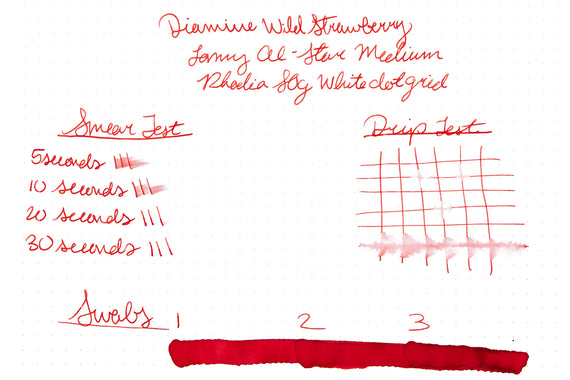 Diamine Wild Strawberry
Lamy Al-Star Medium
Rhodia 80g White dot grid
Smear Test
Drip Test
5 seconds
10 seconds
20 seconds
30 seconds
Swabs 1 2 3